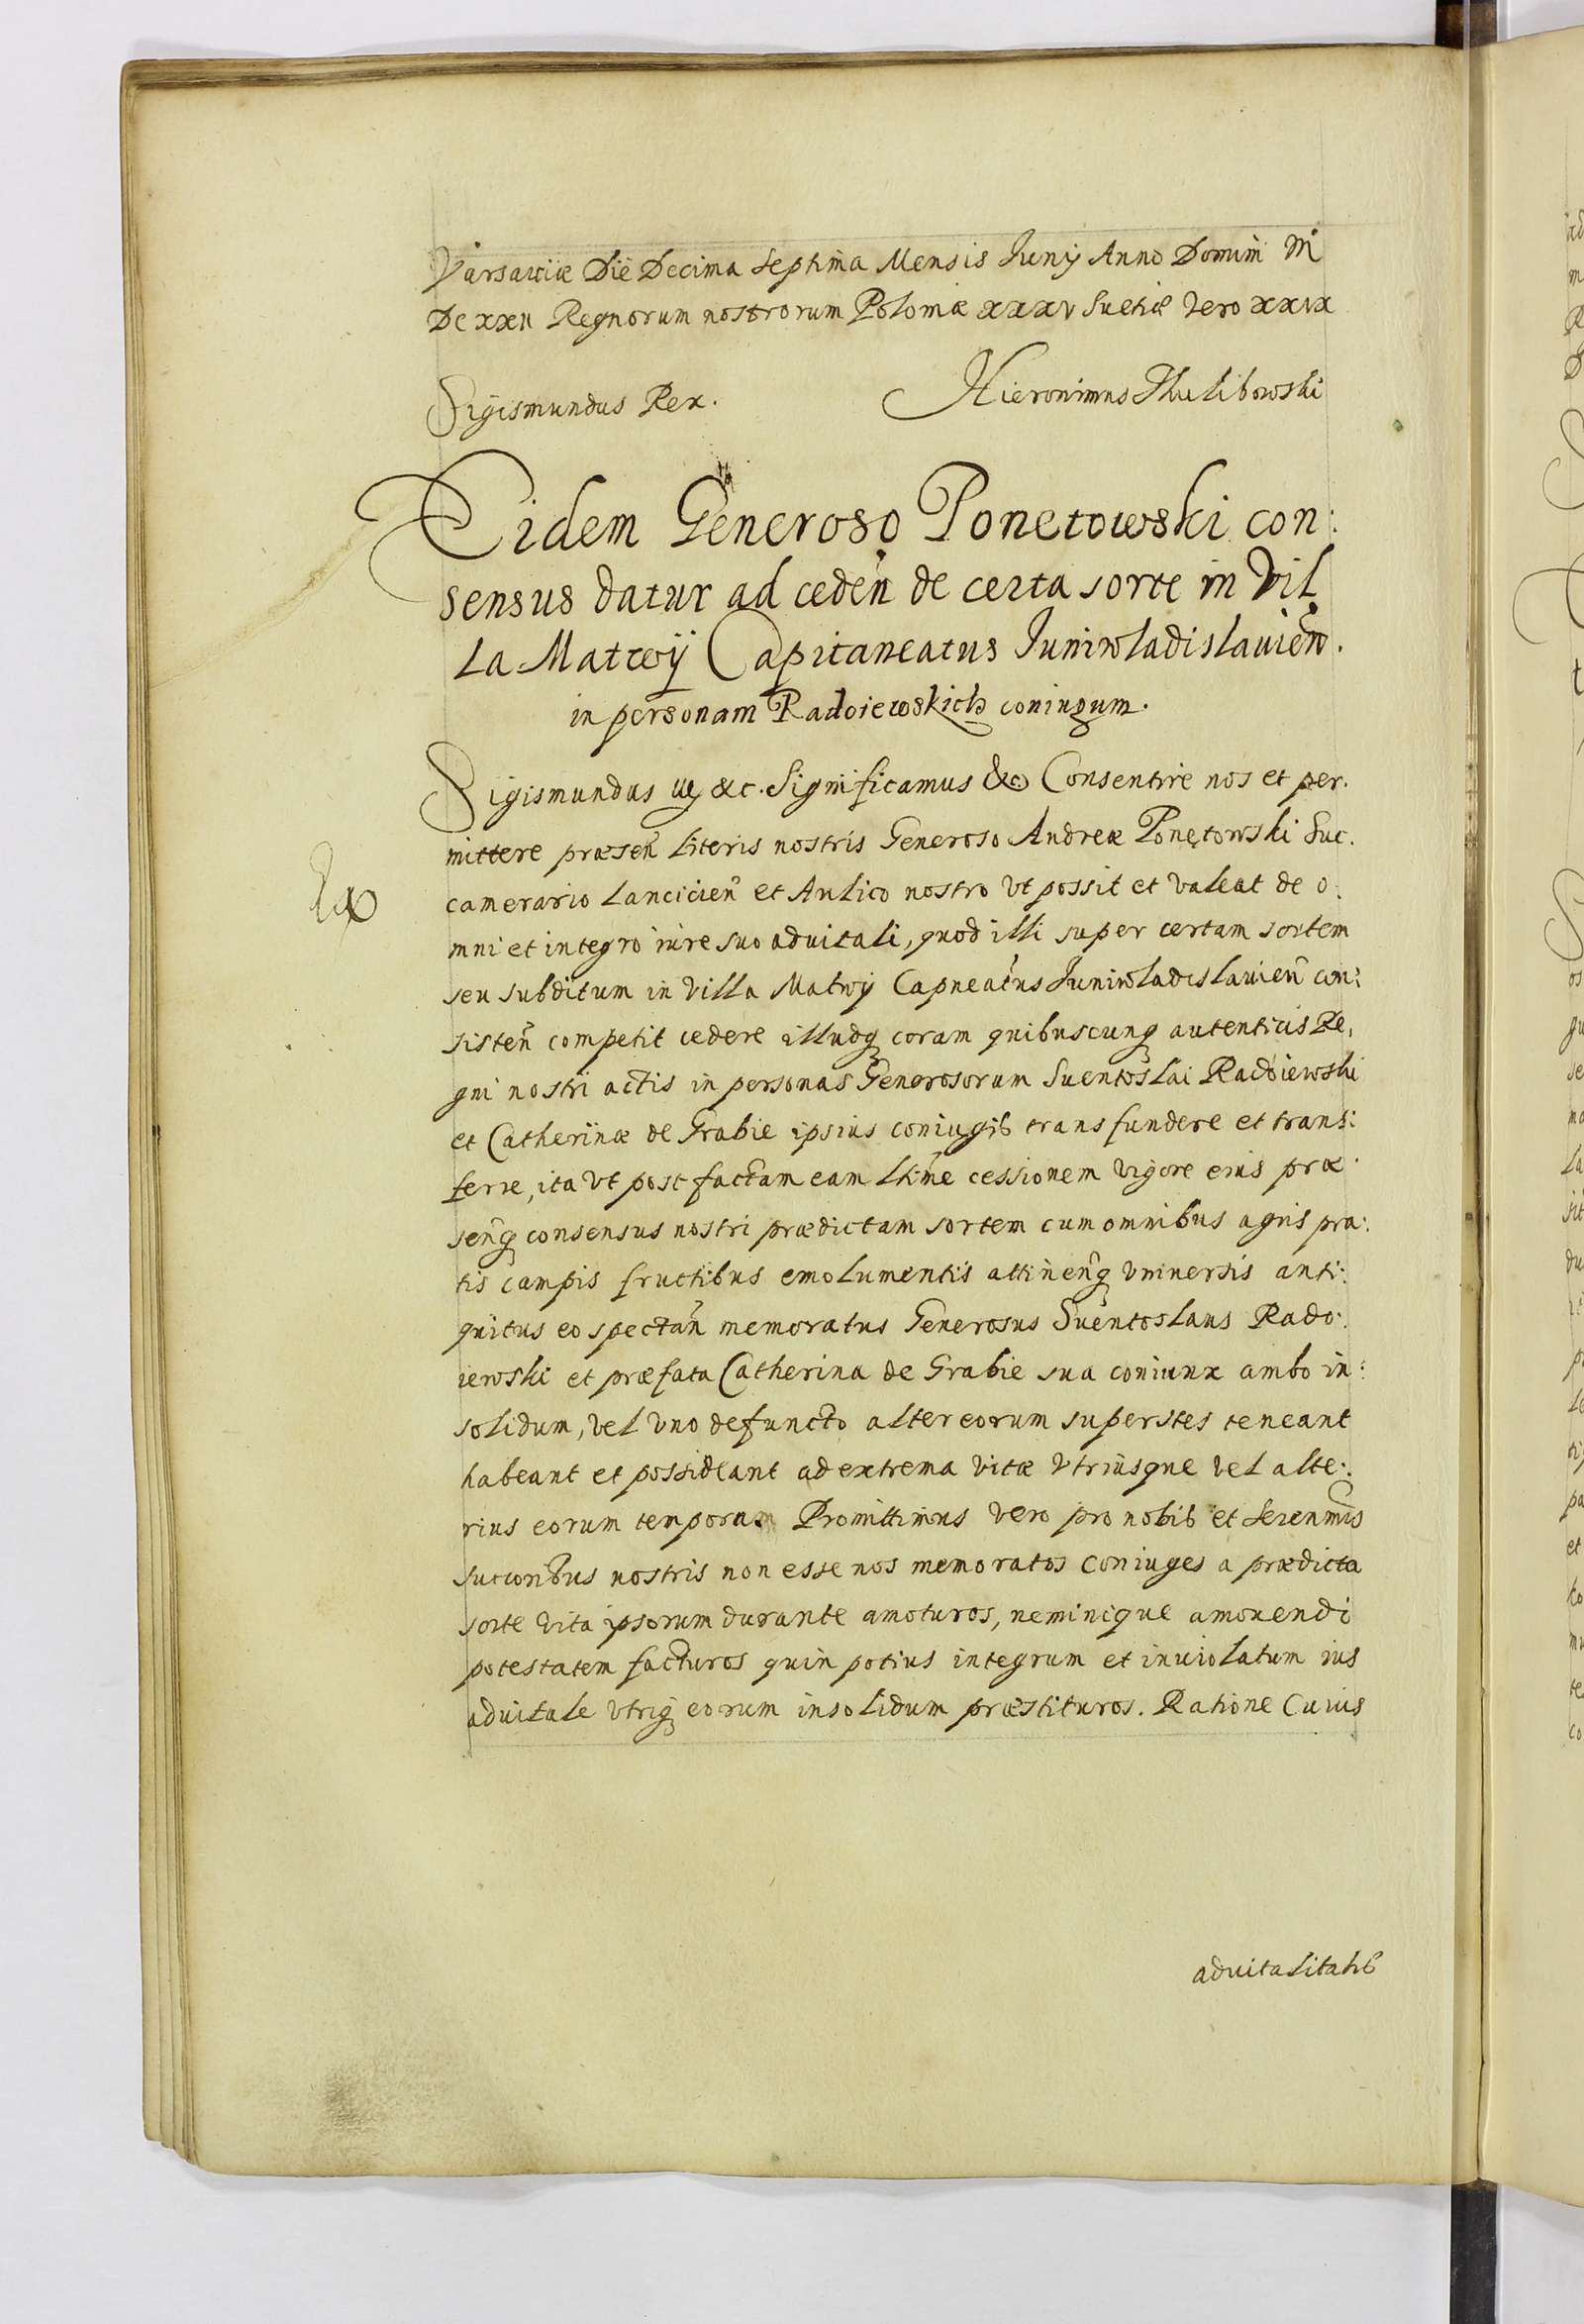 Varsauiæ Die Decima Septima Mensis Iunÿ Anno Domini M
DcXXII Regnorum nostrorum Poloniæ XXXV Suetiæ vero XXIX
Sigismundus Rex. Hieronimus
Eidem Generoso Ponetowski con:
sensus datur ad ceden̄ de certa sorte in Vil
la Matwÿ Capitaneatus Juniwladislauien̄.
in personam Radoiewskich coniugum.
Sigismundus &c. Significamus &c Consentire nos et per.
mittere præsen̄ literis nostris Generoso Andreæ Ponętowski Suc.
camerario Lancicien̄ et Aulico nostro vt possit et valeat de o.
mni et integro iure suo aduitali, quod illi super certam sortem
seu subditum in Villa Matwÿ Capneatus Juniwladislauien̄ con:
sisten̄ competit cedere illudq coram quibuscunq autenticis Re,
gni nostri actis in personas Generosorum Suentoslai Radoiewski
et Catherinæ de Grabie ipsius coniugis transfundere et trans:
ferre, ita vt post factam eam ltime cessionem vigore eius præ.
senq consensus nostri prædictam sortem cum omnibus agris pra:
tis campis fructibus emolumentis attinenq vniuersis anti:
quitus eo spectan̄ memoratus Generosus Suentoslaus Rado:
iewski et præfata Catherina de Grabie sua coniunx ambo in:
solidum, vel vno defuncto alter eorum superstes teneant
habeant et possideant ad extrema vitæ vtriusque vel alte:
rius eorum temporum Promittimus vero pro nobis et Serenmis
succoribus nostris non esse nos memoratos coniuges a prædicta
sorte vita ipsorum durante amoturos, neminique amouendi
potestatem facturos quin potius integrum et inuiolatum ius
aduitale vtriq eorum insolidum præstituros. Ratione Cuius
aduitalitatis